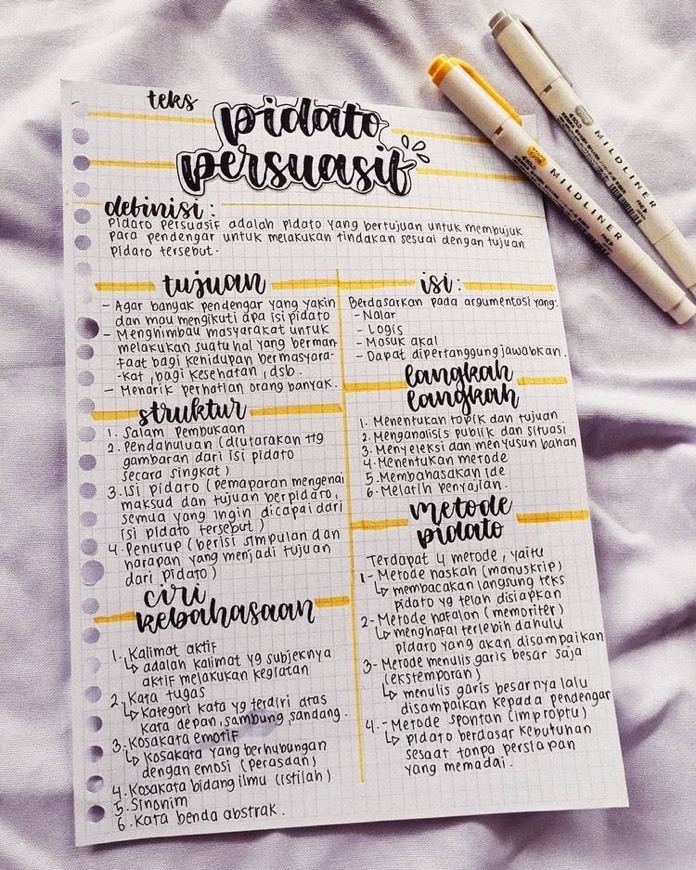 teks
pidato
persuasif
definisi :
Pidato persuasif adalah pidato yang bertujuan untuk membujuk
para pendengar untuk melakukan tindakan sesuai dengan tujuan
pidato tersebut.
tujuan
- Agar banyak pendengar yang yakin
dan mau mengikuti apa isi pidato
- Menghimbau masyarakat untuk
melakukan suatu hal yang berman-
faat bagi kehidupan bermasyora-
-kat, bagi kesehatan, dsb.
- Menarik perhatian orang banyak.
struktur
1. Salam Pembukaan
2. Pendahuluan (diutarakan ttg
gambaran dari isi pidato
secara singkat)
3. Isi pidato (pemaparan mengenai
maksud dan tujuan berpidato,
semua yang ingin dicapai dari
isi pidato tersebut)
4. Penutup (berisi simpulan dan
harapan yang menjadi tujuan
dari pidato)
ciri
kebahasaan
1. Kalimat aktif
↳ adalah kalimat yg subjeknya
aktif melakukan kegiatan
2. Kata tugas
↳ Kategori kata yg terdiri atas
kata depan, sambung, sandang.
3. Kosakata emotif
↳ Kosakata yang berhubungan
dengan emosi (perasaan)
4. Kosakata bidang ilmu (istilah)
5. Sinonim
6. Kata benda abstrak.
isi :
Berdasarkan pada argumentosi yang:
- Nalar
- Logis
- Masuk akal
- Dapat dipertanggungjawabkan.
langkah
langkah
1. Menentukan topik dan tujuan
2. Menganalisis publik dan situasi
3. Menyeleksi dan menyusun bahan
4. Menentukan metode
5. Membahasakan ide
6. Melatih penyajian.
metode
pidato
Terdapat 4 metode, yaitu
1- Metode naskah (manuskrip)
↳ membacakan langsung teks
pidato yg telah disiapkan
2- Metode hafalan (memoriter)
↳ menghafal terlebih dahulu
pidato yang akan disampaikan
3- Metode menulis garis besar saja
(ekstemporan)
↳ menulis garis besarnya lalu
disampaikan kepada pendengar
4.- Metode spontan (improptu)
↳ pidato berdasar kebutuhan
sesaat tanpa persiapan
yang memadai.
MILDLINER
MILDLINER